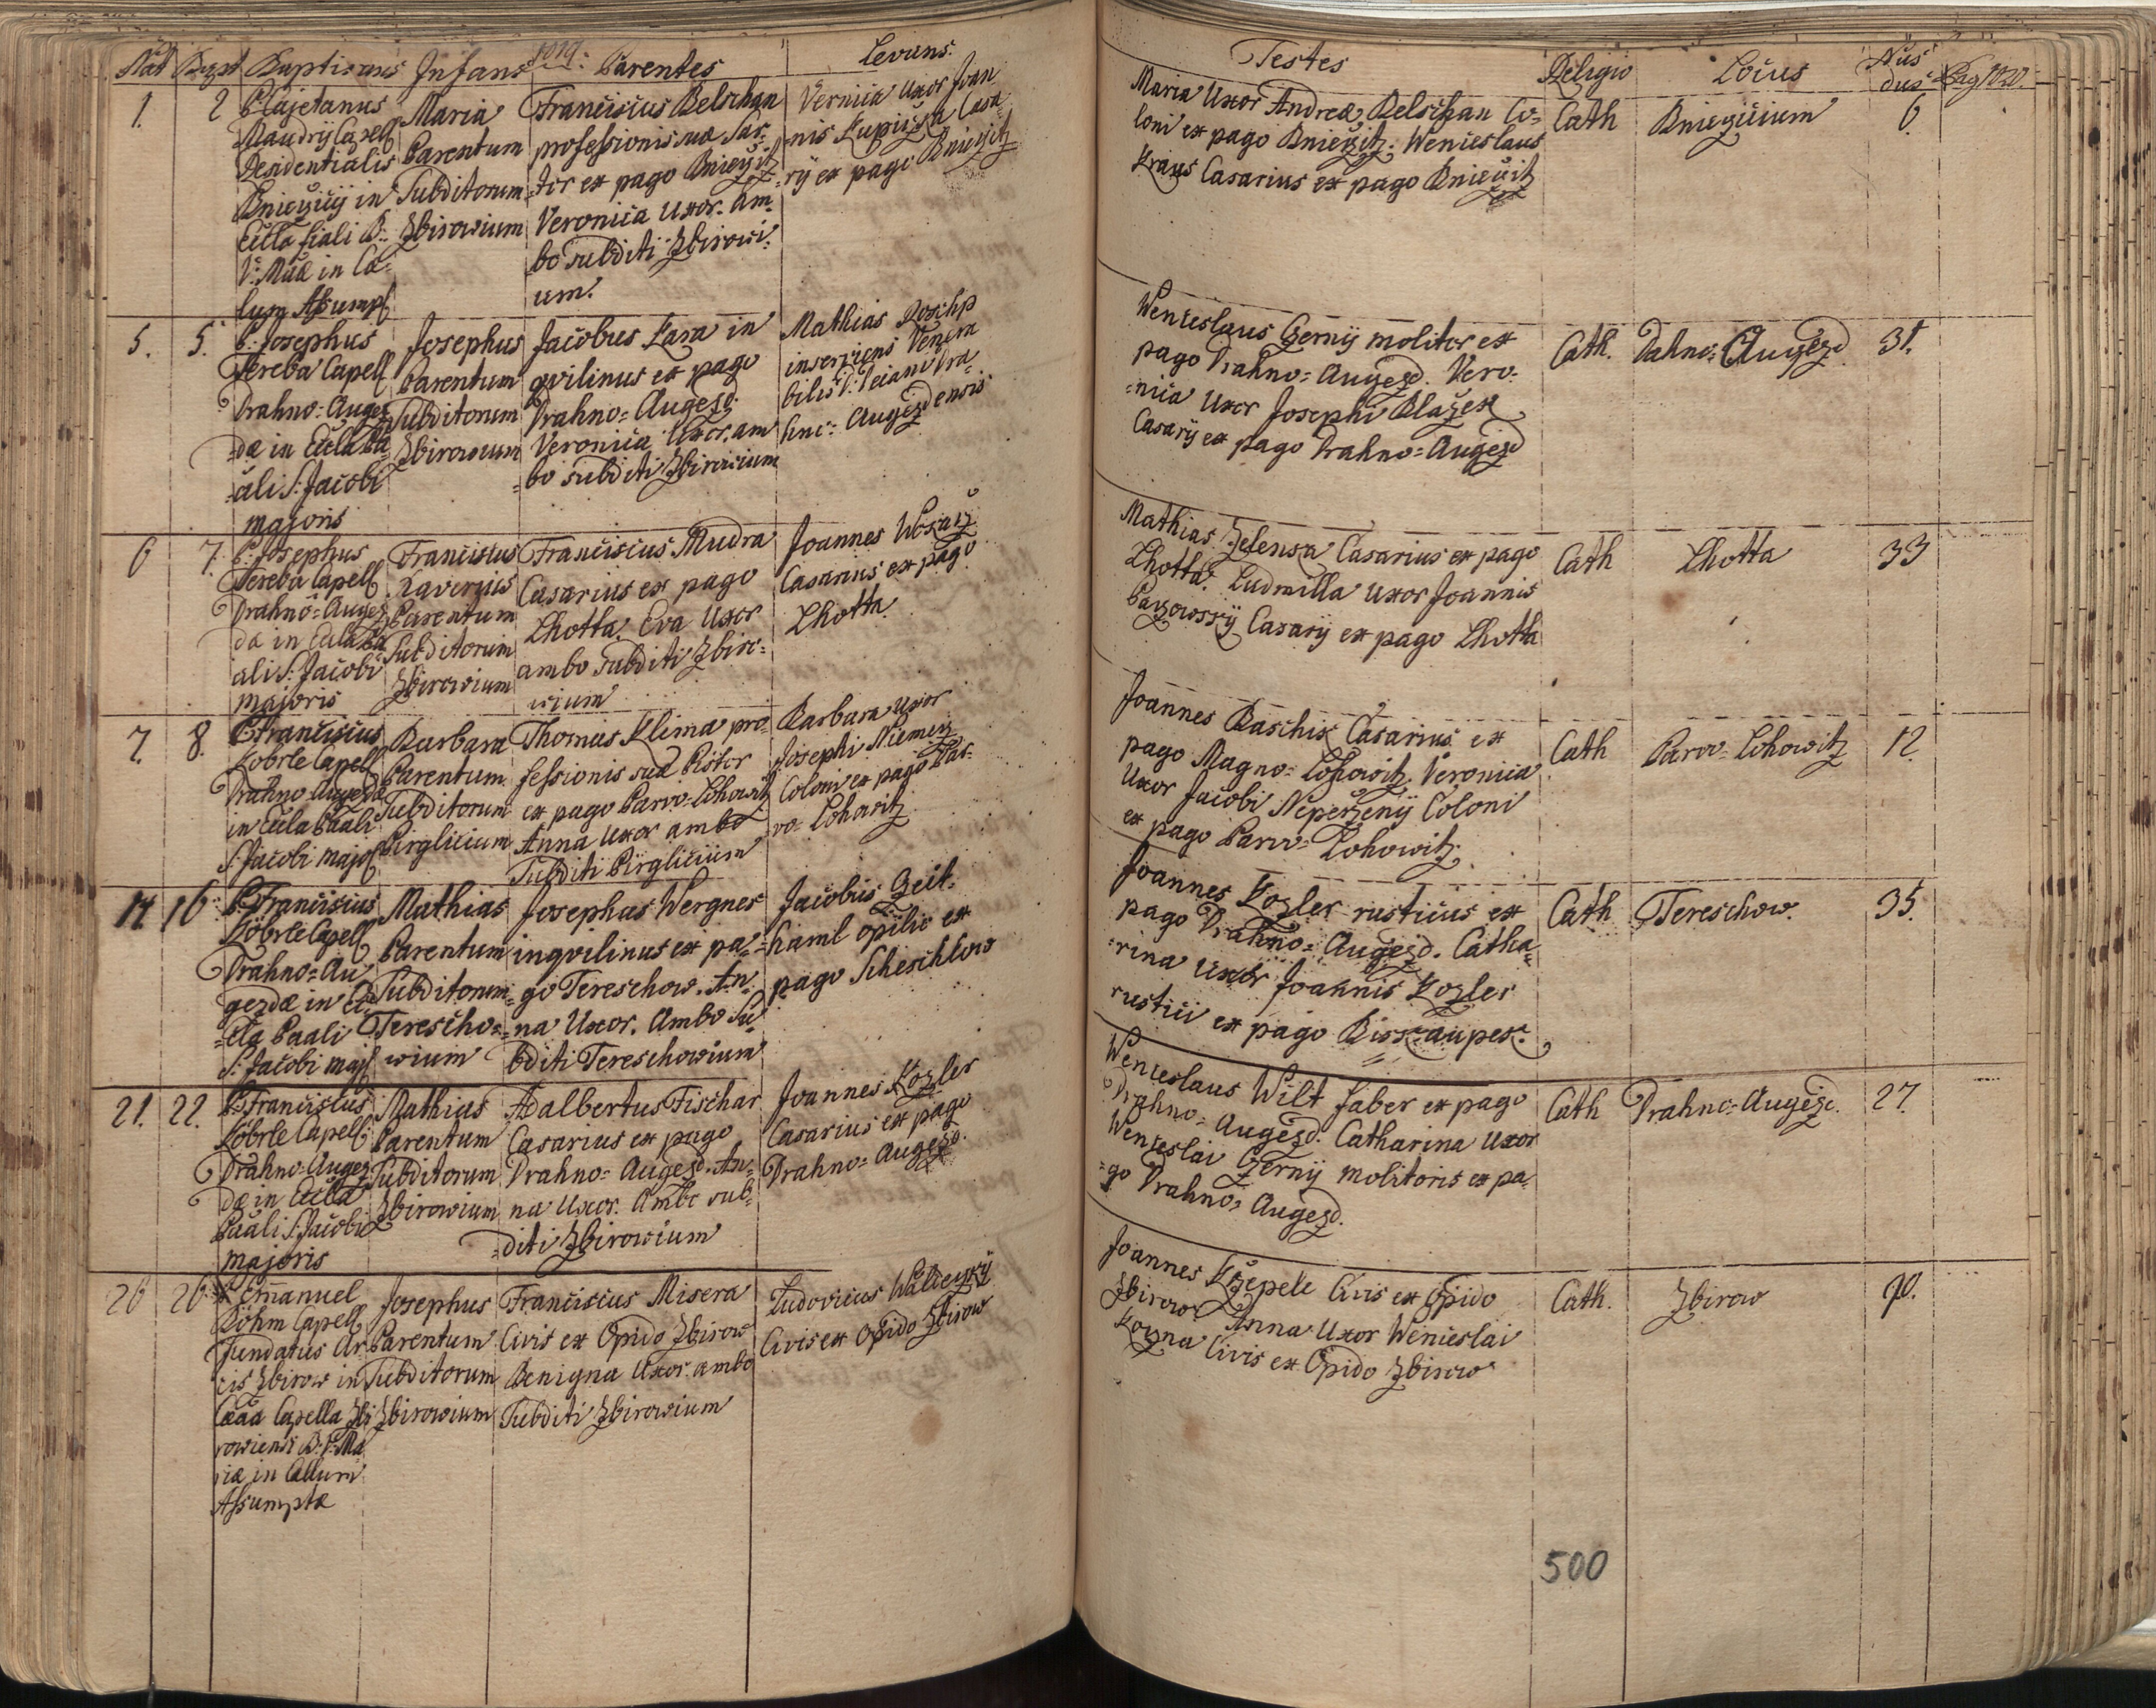 Nat Bapt Baptizans Infans 1019. Parentes Levans.
1. 2
P. Cajetanus
Maudrij Capell
Residentialis
Bniezicij in
Eccla fiali B:
V: Mae in Cæ-
lum Assump
Maria
Parentum
Subditorum
Zbirowium
Franciscus Belschan
professionis suæ Sar-
tor ex pago Bniezitz
Veronica Uxor. Am-
bo subditi Zbirowi-
um.
Vernica Uxor Joan
nis Kupiczka Casa
rij ex pago Bniezitz
5. 5.
P. Josephus
Tereba Capell
Drahno=Augez
dæ in Eccla Pa
ali S: Jacobi
majoris
Josephus
Parentum
Subditorum
Zbirowium
Jacobus Kasa in
qvilinus ex pago
Drahno=Augezd.
Veronica Uxor. am
bo subditi Zbirowium
Mathias
inserviens Venera
bilis D: Leiani Dra-
hno=Augezdensis
6 7.
P. Josephus
Tereba Capell
Drahno=Augez
dæ in Eccla Pa
ali S: Jacobi
majoris
Franciscus
Xaverius
Parentum
Subditorum
Zbirowium
Franciscus Mudra
Casarius ex pago
Lhotta. Eva Uxor
ambo subditi Zbiro=
wium
Joannes
Casarius ex pago
Lhotta.
7. 8.
P. Franciscus
Köbrle Capell
Drahno Augezdæ
in Eccla Paali
S: Jacobi major
Barbara
Parentum
Subditorum
Pirglicium
Thomas Klima pro-
fessionis suæ Pistor
ex pago Parvo=Lohowitz
Anna Uxor ambo
Subditi Pirglicium
Barbara Uxor
Josephi Niemetz
Coloni ex pago Par-
vo=Lohowitz
14. 16.
P. Franciscus
Köbrle Capell
Drahno=Au
gezdæ in Ec
cla Paali
S: Jacobi maj
Mathias
Parentum
Subditorum
Terescho=
wium
Josephus Wergnes
inqvilinus ex pa-
go Tereschow. An-
na Uxor. Ambo Su
bditi Tereschowium
Jacobus Zeit-
haml opilio ex
pago Scheschlow
21. 22.
P. Franciscus
Köbrle Capell
Drahno=Augez
dæ in Eccla
Paali S: Jacobi
majoris
Mathias
Parentum
Subditorum
Zbirowium
Adalbertus Fischar
Casarius ex pago
Drahno=Augezd. An-
na Uxor. Ambo sub-
diti Zbirowium
Joannes Kozler
Casarius ex pago
Drahno=Augezd.
26 26
Emanuel
Böhm Capell
Fundatus Ar
cis Zbirow in
Cæaa Capella Zbi
rowiensi B: V: Ma
riæ in Cælum
Assumptæ
Josephus
Parentum
Subditorum
Zbirowium
Franciscus Misera
Civis ex Opido Zbirow
Benigna Uxor. ambo
Subditi Zbirowium
Ludovicus
Civis ex Opido Zbirow
Testes Religio Locus Nus dus Pag 1020.
Maria Uxor Andreæ Belschan Co-
loni ex pago Bniezitz. Wenceslaus
Kraus Casarius ex pago Bniezitz
Cath Bniezicium 6
Wenceslaus Czernij molitor ex
pago Drahno=Augezd. Vero-
nica Uxor Josephi Blazek
Casarij ex pago Drahno=Augezd
Cath. Dahno=Augezd 31.
Mathias Zelenka Casarius ex pago
Lhotta. Ludmilla Uxor Joannis
Casarij ex pago Lhotta
Cath Lhotta 33
Joannes Baschis Casarius ex
pago Magno=Lohowitz. Veronica
Uxor Jacobi Neperzenij Coloni
ex pago Parvo=Lohowitz.
Cath Parvo=Lohowitz 12.
Joannes Kozler rusticus ex
pago Drahno=Augezd. Catha=
rina Uxor Joannis Kozler
rustici ex pago Biskaupek.
Cath Tereschow. 35.
Wenceslaus Wilt faber ex pago
Drahno=Augezd. Catharina Uxor
Wenceslai Czernij molitoris ex pa-
go Drahno=Augezd.
Cath Drahno=Augezd. 27.
Joannes Krzepele Civis ex Opido
Zbirow Anna Uxor Wenceslai
Kozna Civis ex Opido Zbirow
Cath. Zbirow 90.
500